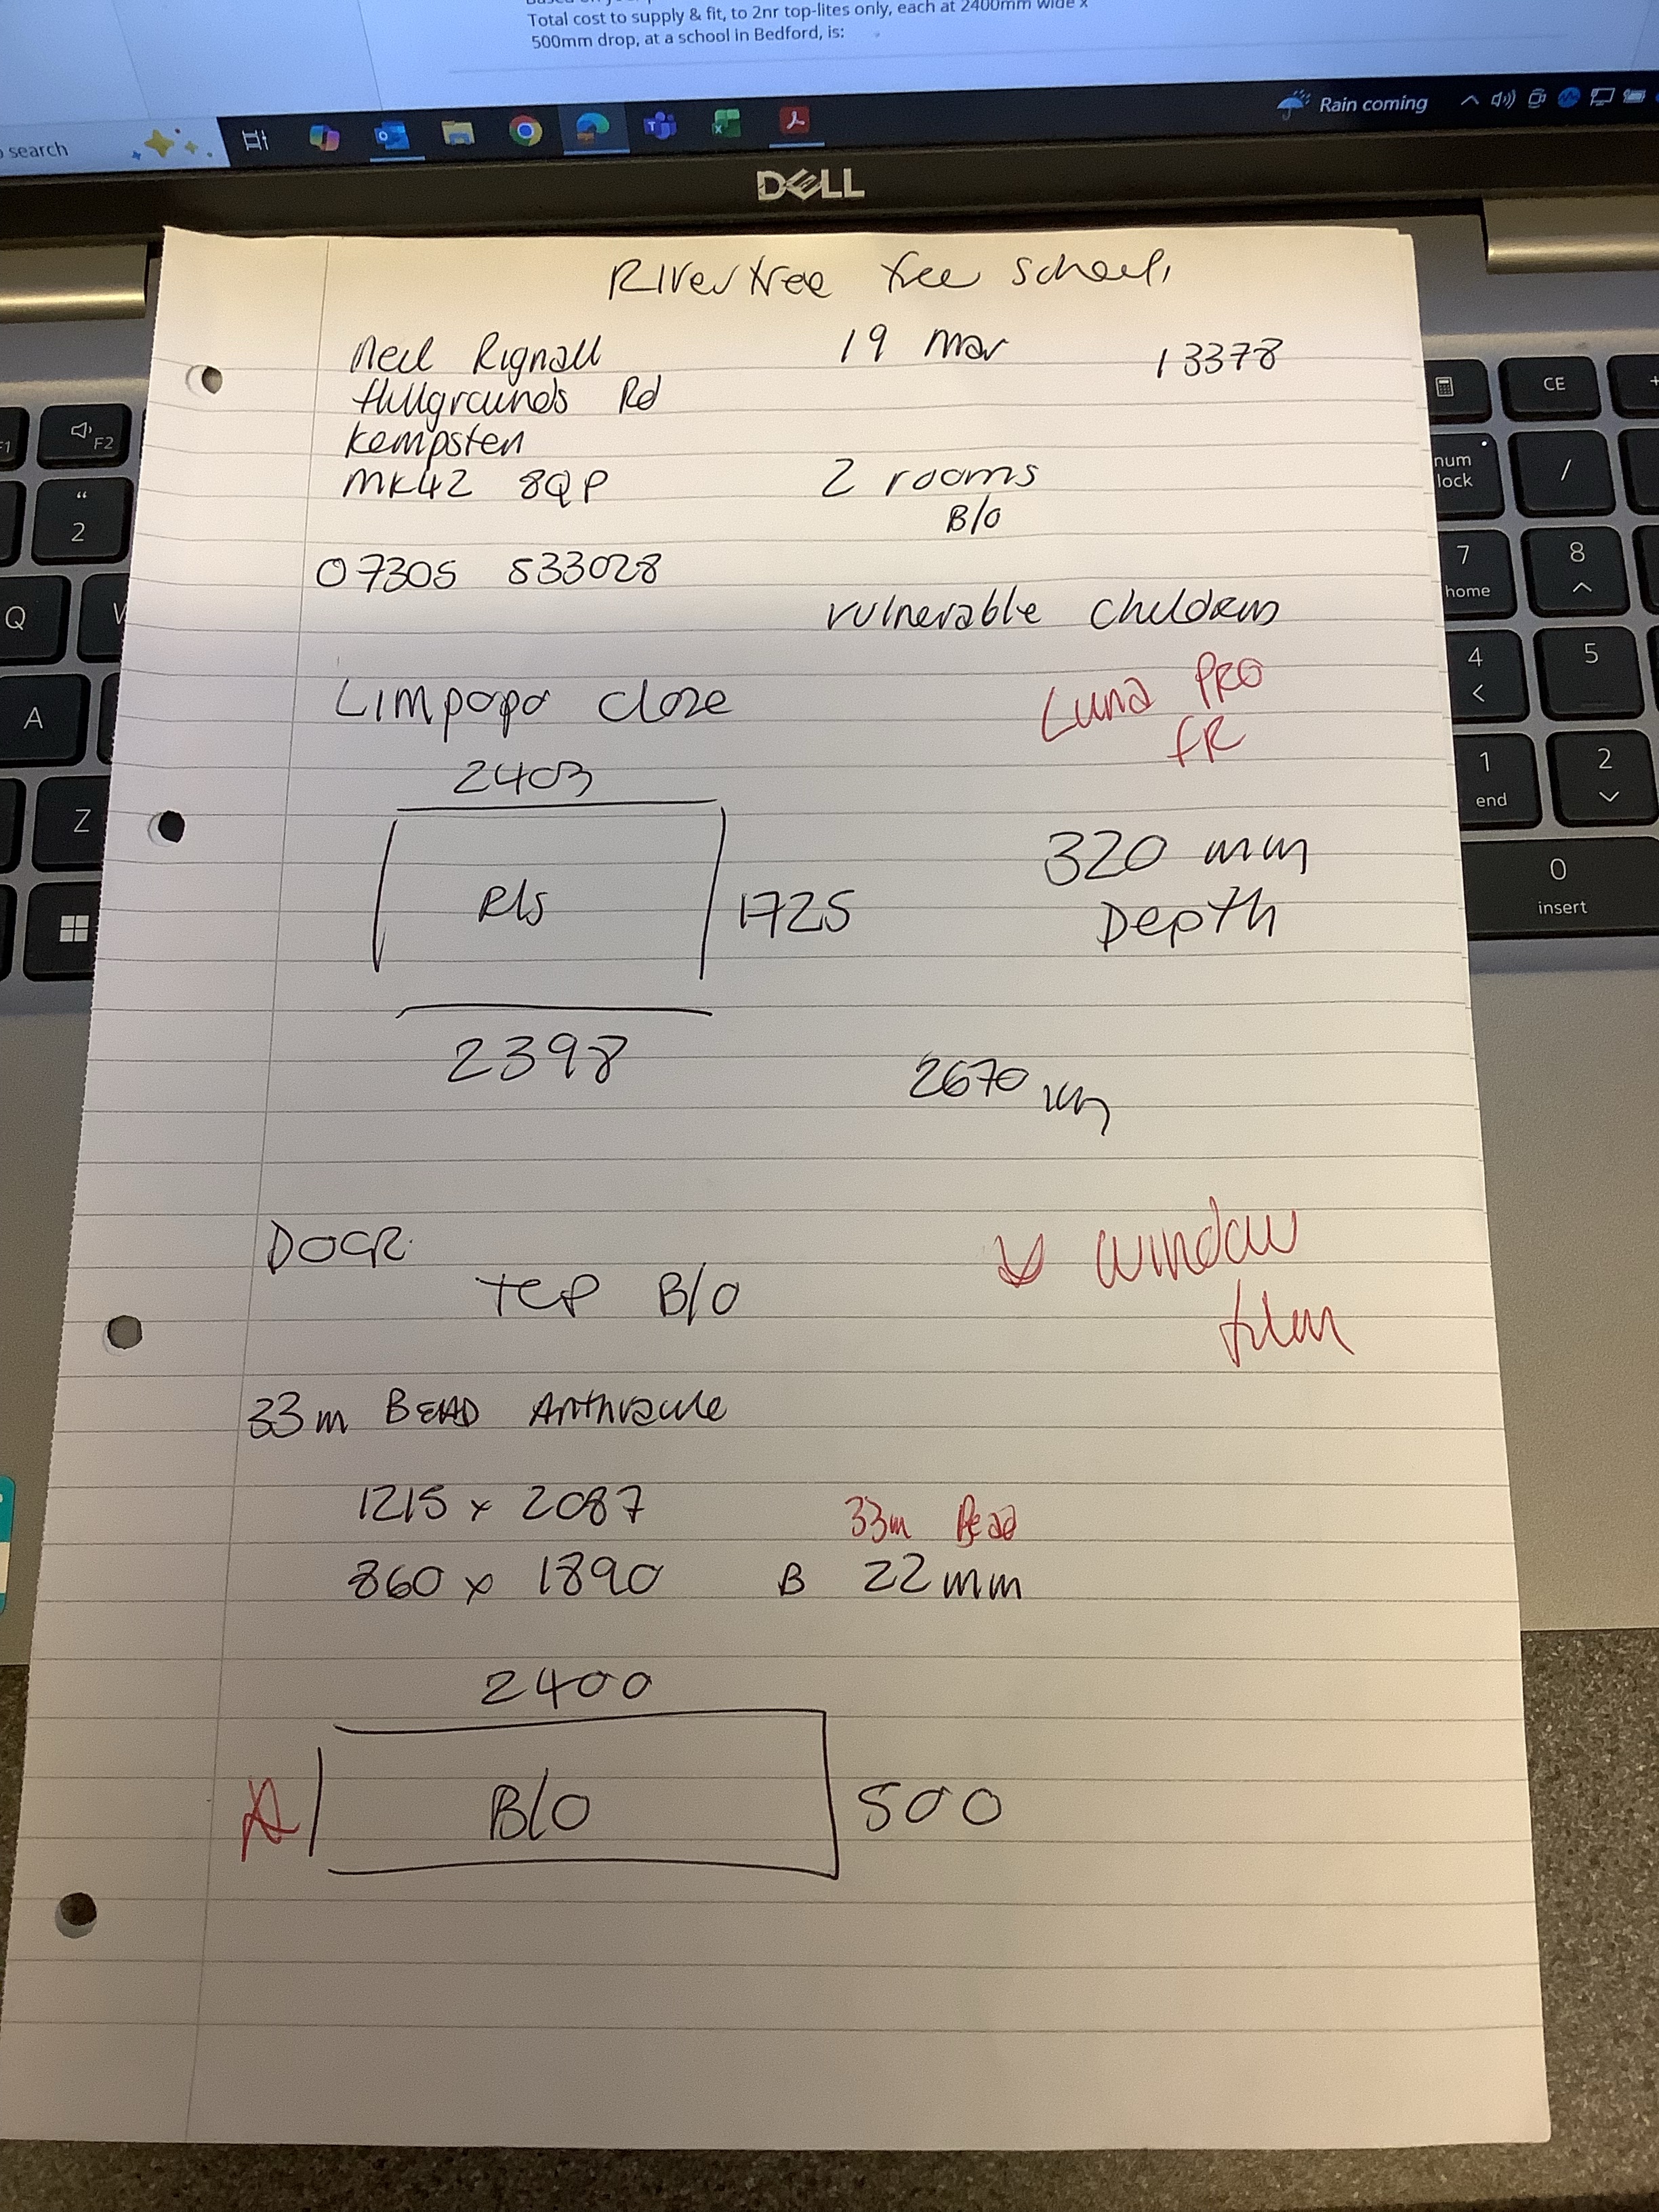 Total cost to supply & fit, to 2nr top-lites only, each at 2400mm wide x
500mm drop, at a school in Bedford, is:
search
Rain coming
DELL
Rivertree free School,
Neil Rignall 19 Mar 13378
Hillgrounds Rd
Kempston
MK42 8QP 2 rooms
B/O
07305 533028
vulnerable Children
Limpopo Close Luna PRO
FR
2403
R/s 1725 320 mm
Depth
2398
2670
DOOR
TOP B/O window
film
33m BEAD Anthracite
1215 x 2087 33m Bead
860 x 1890 B 22mm
2400
B/O 500
F1
F2
“
2
Q
W
A
Z
CE
+
num
lock
/
7
home
8
4
5
1
end
2
0
insert